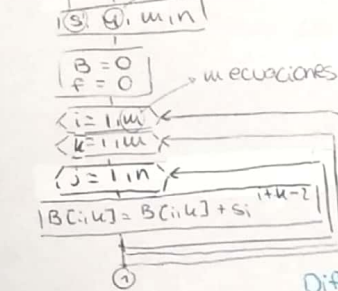 s, y, m, n
B = 0
f = 0
m ecuaciones
i = 1, m
k = 1, m
j = 1, n
B[i,k] = B[i,k] + Si^i+k-2
1
Dif